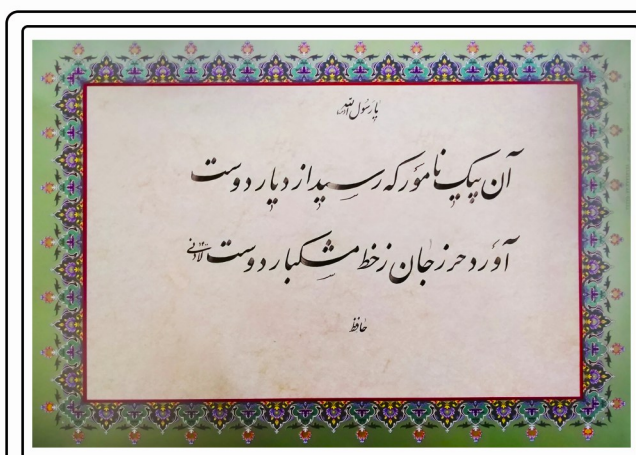 یا رسول الله
آن پیک نامور که رسید از دیار دوست
آورد حرز جان ز خط مشکبار دوست
حافظ